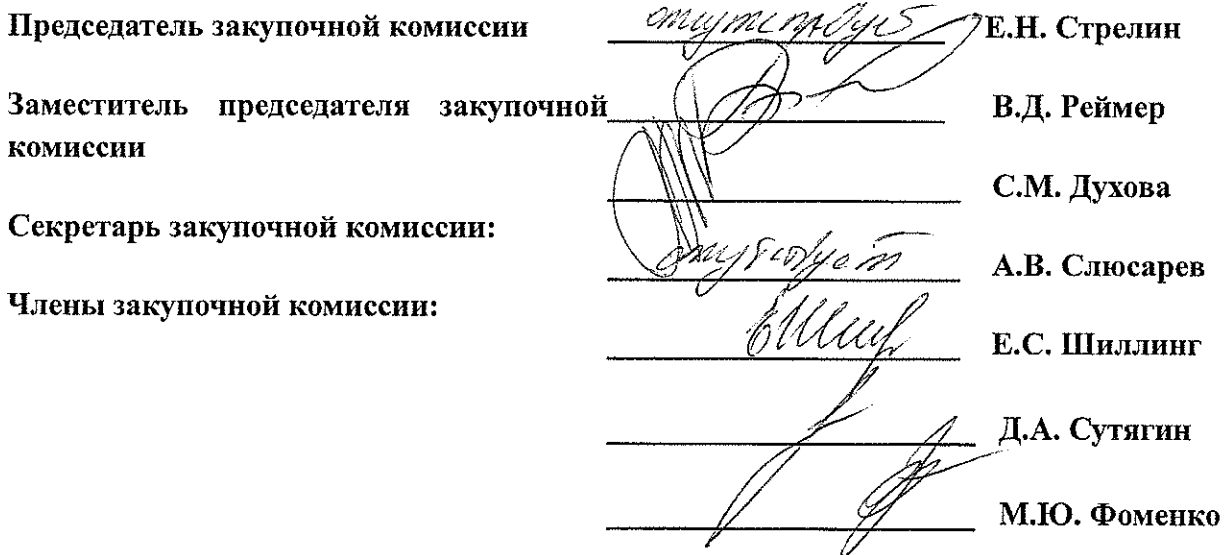 Председатель закупочной комиссии отсутствует Е.Н. Стрелин
Заместитель председателя закупочной В.Д. Реймер
комиссии
С.М. Духова
Секретарь закупочной комиссии:
отсутствует А.В. Слюсарев
Члены закупочной комиссии:
Е.С. Шиллинг
Д.А. Сутягин
М.Ю. Фоменко